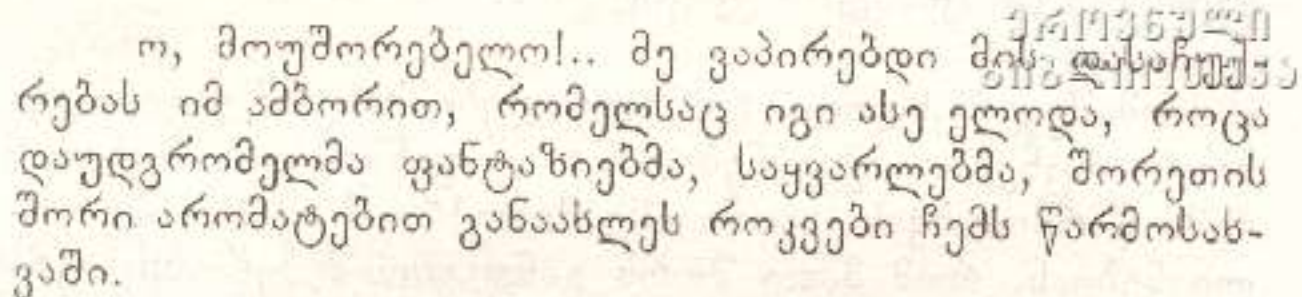 ეროვნული
ბიბლიოთეკა
ო, მოუშორებელო!.. მე ვაპირებდი მის დასაჩუქ-
რებას იმ ამბორით, რომელსაც იგი ასე ელოდა, როცა
დაუდგრომელმა ფანტაზიებმა, საყვარლებმა, შორეთის
შორი არომატებით განაახლეს როკვები ჩემს წარმოსახ-
ვაში.